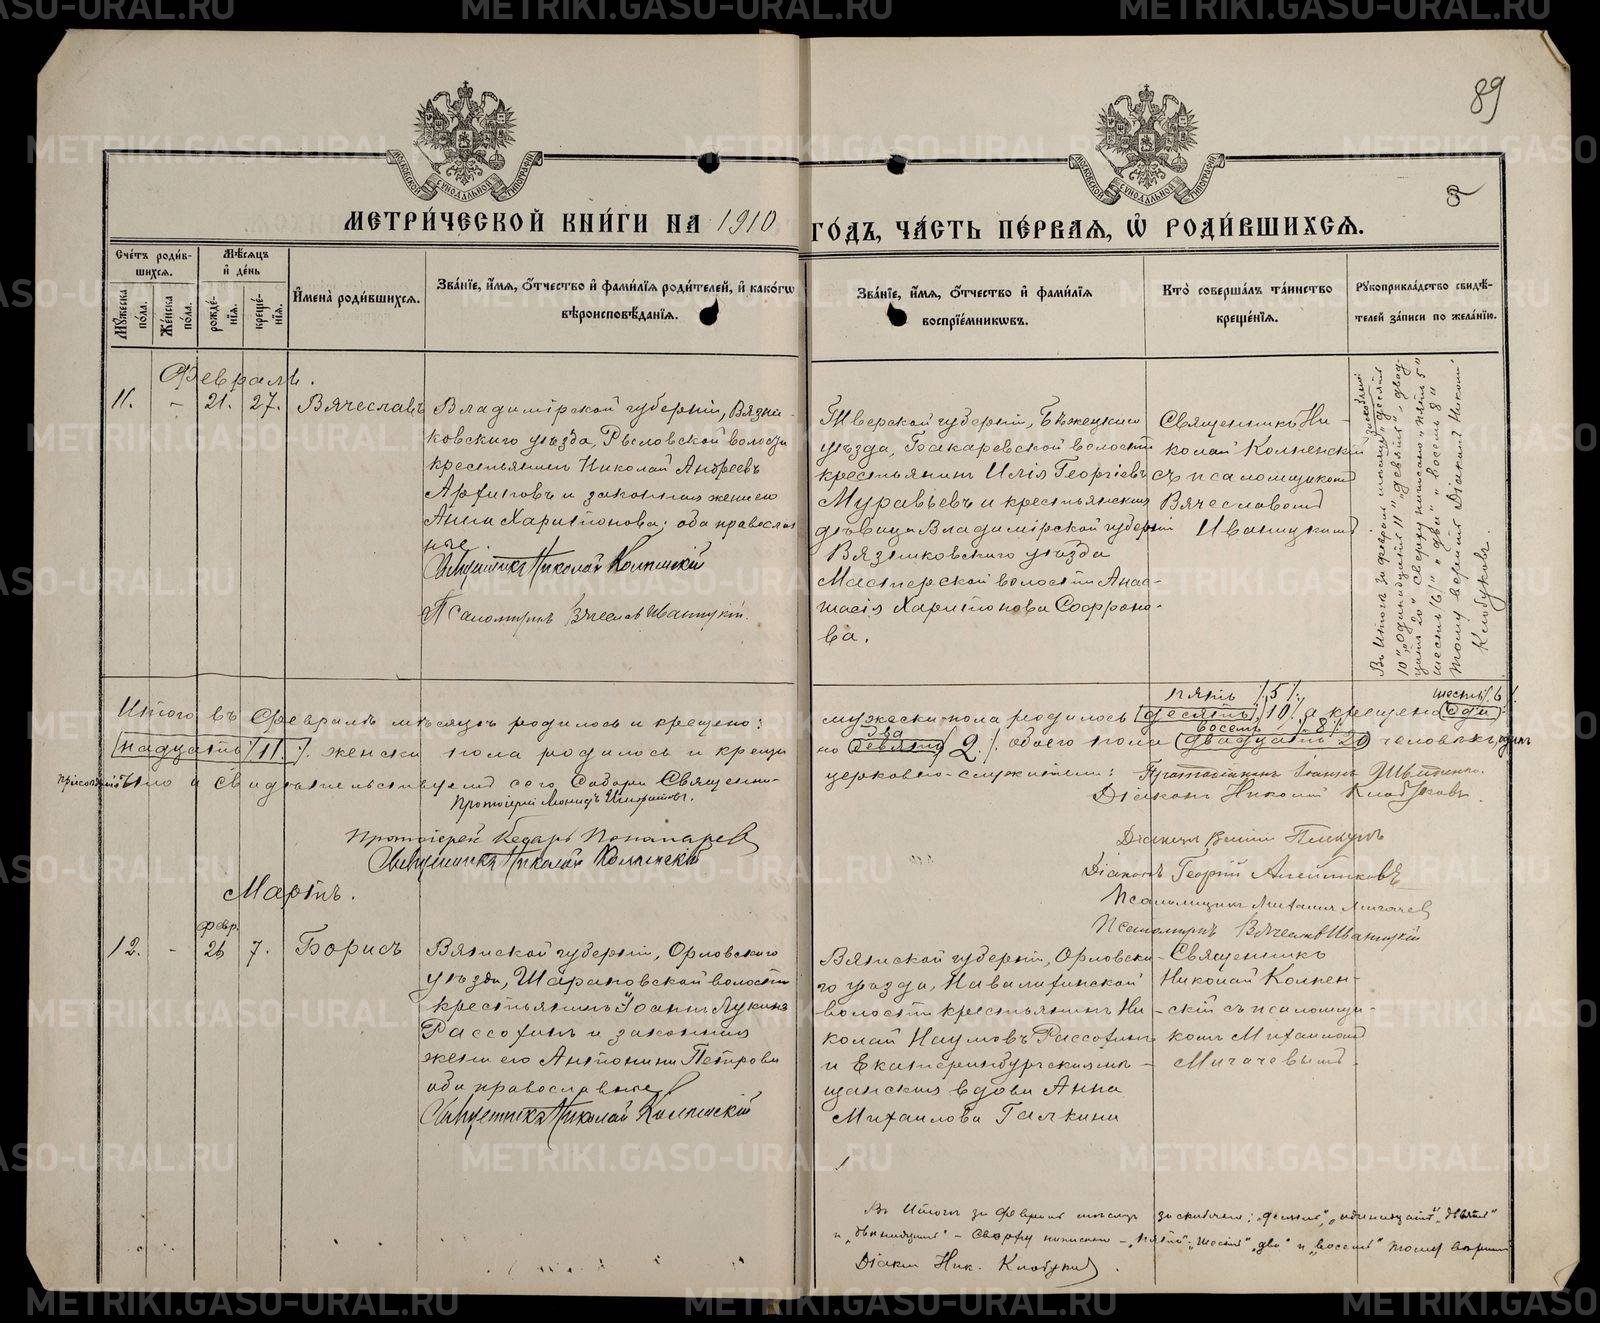 METRIKI.GASO-URAL.RU
89
МОСКОВСКОЙ СѴНОДАЛЬНОЙ ТИПОГРАФІИ
МЕТРИ́ЧЕСКОЙ КНИ́ГИ НА 1910 ГО́ДЪ, ЧА́СТЬ ПЕ́РВАЯ, Ѽ РОДИ́ВШИХСЯ.
Сче́тъ роди́в-
шихся.
Мѣ́сяцъ
и҆ де́нь
Му́жеска по́ла.
Же́нска по́ла.
рожде́-
нія.
креще́-
нія.
И҆мена̀ роди́вшихся.
Зва́ніе, и҆́мя, ѻ҆́тчество и҆ фами́лія роди́телей, и҆ како́гѡ
вѣроисповѣ́данія.
Зва́ніе, и҆́мя, ѻ҆́тчество и҆ фами́лія
воспріе́мникѡвъ.
Кто̀ соверша́лъ та́инство
креще́нія.
Рукоприкла́дство свидѣ́-
телей за́писи по жела́нію.
Февраль.
11. - 21. 27. Вячеславъ
Владимірской губерніи, Вязни-
ковского уѣзда, Рыловской волости
крестьянинъ Николай Андреевъ
Арфиповъ и законная жена его
Анна Харитонова; оба православ
ные
Священникъ Николай Колпенскій
Псаломщикъ Вячеславъ Иваницкій.
Тверской губерніи, Бѣжецкаго
уѣзда, Бакаревской волости
крестьянинъ Илія Георгіевъ
Муравьевъ и крестьянская
дѣвица Владимірской губерніи
Вязниковского уѣзда
Мастерской волости Анас-
тасія Харитонова Софроно-
ва.
Священникъ Ни-
колай Колпенскій
съ псаломщикомъ
Вячеславомъ
Иваницкимъ
Въ Итогѣ за февраль мѣсяцъ "десять
10" "одинадцать 11" "девять", двад
цать 20" сверху написано "пять 5"
шесть /6/" "два" "восемь 8"
тому вѣрить Діаконъ Николай
Клобуковъ.
Итого въ Февралѣ мѣсяцѣ родилось и крещено:
мужеска пола родилось десять 10 /. а крещено оди
пять /5/.
шесть /6/
надцать /11./. женска пола родилось и креще
но девять 9 /. обоего пола двадцать 20 человѣкъ,
два
восемь /8/
но и свидѣтельствуемъ сего Собора Священно-
церковно-служители:
Протоіерей
Діаконъ Николай Клобуковъ.
Протоіерей
Священникъ Николай Колпенскій
Діаконъ
Діаконъ Георгій
Псаломщикъ Михаилъ Мигачев
Псаломщикъ Вячеславъ Иваницкій
Мартъ.
февр.
12. - 26 7. Борисъ
Вятской губерніи, Орловского
уѣзда, Шарановской волости
крестьянинъ Іоаннъ Лукинъ
Рассохинъ и законная
жена его Антонина Петрова
оба православные
Священникъ Николай Колпенскій
Вятской губерніи, Орловска-
го уѣзда, Навалихинской
волости крестьянинъ Ни-
колай Наумовъ Рассохинъ
и Екатеринбургская мѣ-
щанская вдова Анна
Михаилова Галкина
Священникъ
Николай Колпен-
скій съ псаломщи-
комъ Михаиломъ
Мигачевымъ.
Въ Итогѣ за февраль мѣсяцъ заскоблено: "десять", "одинадцать", "девять"
и "двадцать" - Сверху написано - "пять", "шесть" "два" и "восемь" тому вѣрить
Діаконъ Ник. Клобуковъ.